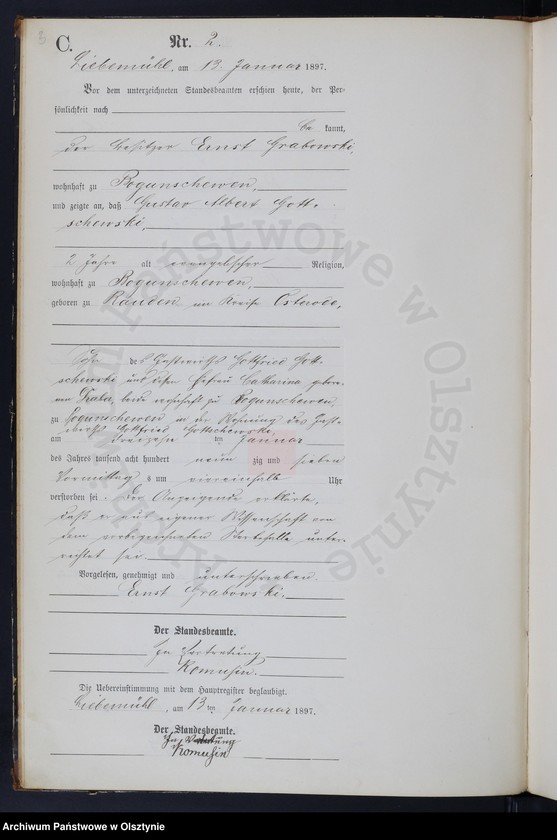 C.
Nr. 2.
Liebemühl, am 13. Januar 1897.
Vor dem unterzeichneten Standesbeamten erschien heute, der Per-
sönlichkeit nach
be kannt,
der Besitzer Ernst Grabowski,
wohnhaft zu Bogunschewen,
und zeigte an, daß Gustav Albert Gott-
schewski,
2 Jahre alt evangelischer Religion,
wohnhaft zu Bogunschewen,
geboren zu Rauden im Kreise Osterode,
Sohn des Gastwirths Gottfried Gott-
schewski und dessen Ehefrau Catharina gebore-
nen beide wohnhaft zu Bogunschewen,
zu Bogunschewen in der Wohnung des Gast-
wirths Gottfried Gottschewski,
am dreizehnten Januar
des Jahres tausend acht hundert neun zig und sieben
Vormittags um viereinhalb Uhr
verstorben sei. Der Anzeigende erklärte,
daß er aus eigener Wissenschaft von
dem vorbezeichneten Sterbefalle unter-
richtet sei.
Vorgelesen, genehmigt und unterschrieben.
Ernst Grabowski.
Der Standesbeamte.
In Vertretung
Komusin.
Die Uebereinstimmung mit dem Hauptregister beglaubigt.
Liebemühl, am 13ten Januar 1897.
Der Standesbeamte.
In Vertretung
Komusin
Archiwum Państwowe w Olsztynie
Archiwum Państwowe w Olsztynie